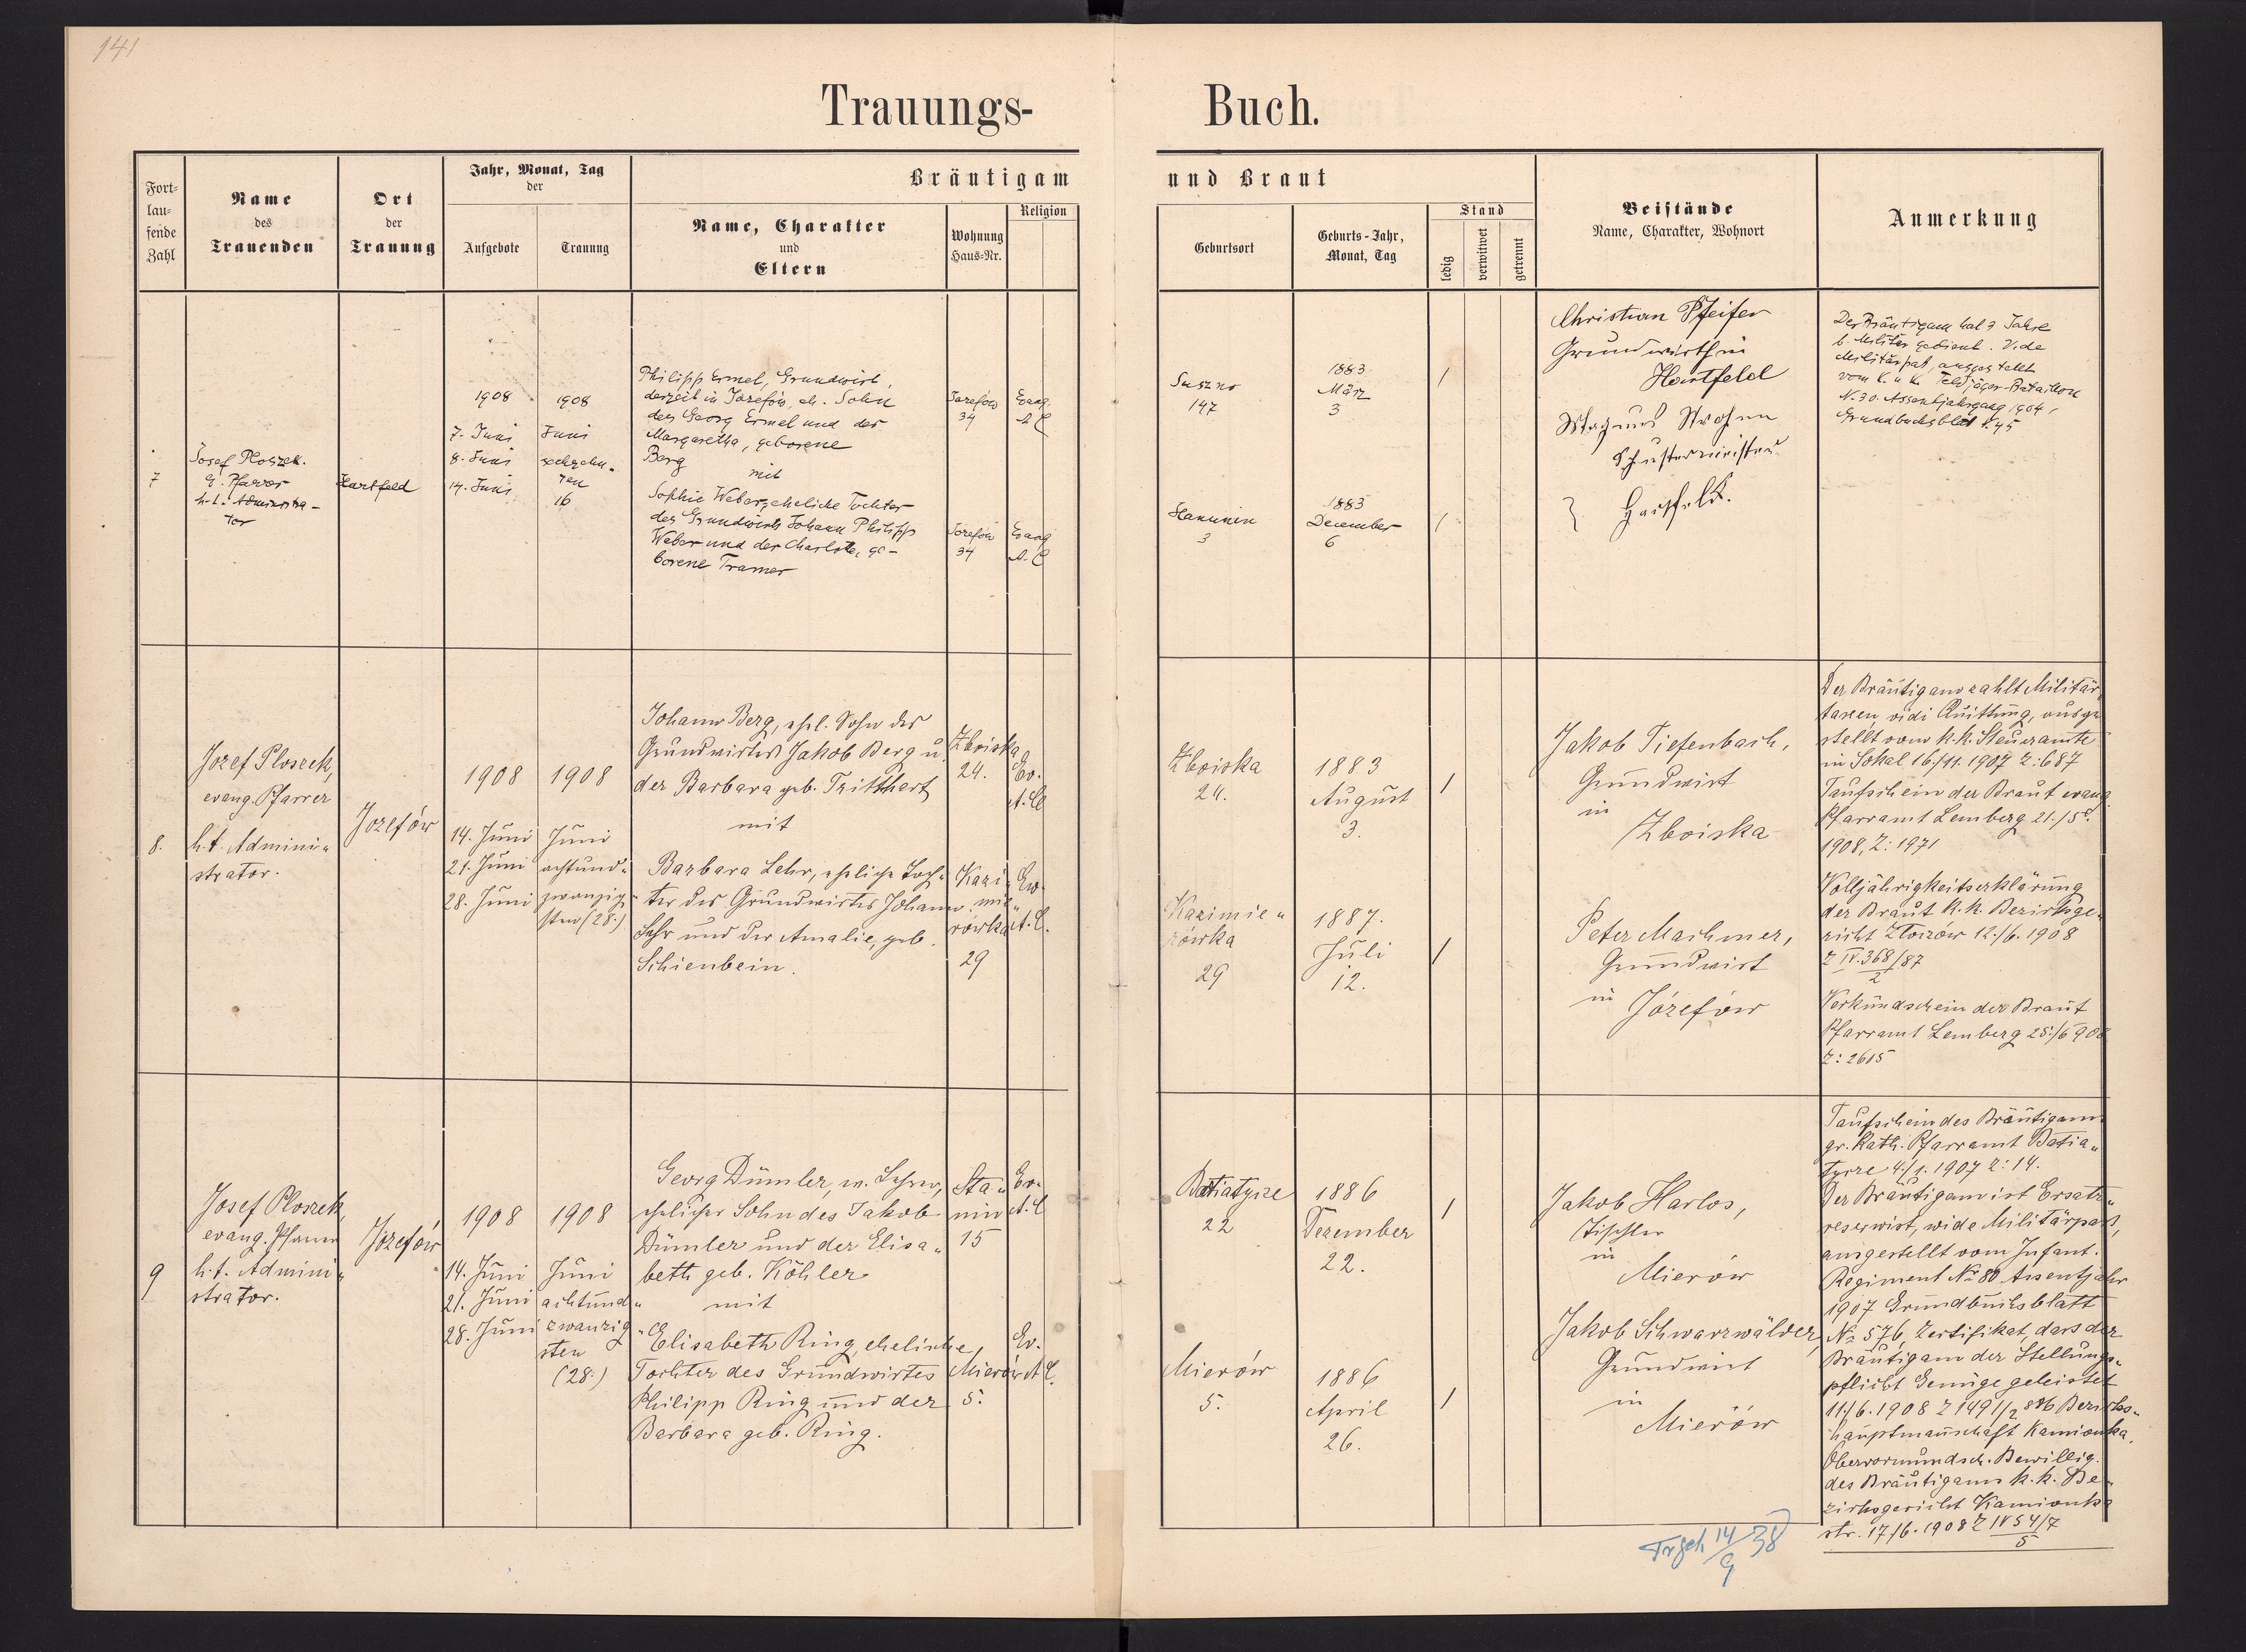 141
Trauungs-Buch.
Fort-
lau-
fende
Zahl
Name
des
Trauenden
Ort
der
Trauung
Jahr, Monat, Tag
der
Aufgebote
Trauung
Bräutigam und Braut
Name, Charakter
und
Eltern
Wohnung
Haus-Nr.
Religion
Geburtsort
Geburts-Jahr,
Monat, Tag
Stand
ledig
verwitwet
getrennt
Beistände
Name, Charakter, Wohnort
Anmerkung
7
Josef Ploszek.
E. Pfarrer
h. t. Administra-
tor
Hartfeld
1908
7. Juni
8. Juni
14. Juni
1908
Juni
sechzehn-
ten
16
Philipp Ermel, Grundwirt,
derzeit in Józefów, eh. Sohn
des Georg Ermel und der
Margaretha, geborene
Berg
mit
Sophie Weber, eheliche Tochter
des Grundwirts Johann Philipp
Weber und der Charlotte, ge-
borene Tramer
Józefów
34
Evang
A. C
Józefów
34
Evang
A. C
Suszno
147
1883
März
3
/
Hanunin
3
1883
December
6
/
Christian Pfeifer
Grundwirth in
Hartfeld
Magnus Strohm
Schustermeister
} Hartfeld.
Der Bräutigam hat 3 Jahre
b. Militär gedient. Vide
Militärpaß, ausgestellt
vom K. u. K. Feldjäger-Bataillon
N. 30. Assentjahrgang 1904,
Grundbuchsblatt N. 45
8.
Jozef Ploszek,
evang. Pfarrer
h. t. Admini-
strator.
Jozefów
1908
14. Juni
21. Juni
28. Juni
1908
Juni
achtund-
zwanzig-
sten (28.)
Johann Berg, ehel. Sohn des
Grundwirtes Jakob Berg u.
der Barbara geb. Tritthart
mit
Barbara Lehr, eheliche Toch-
ter des Grundwirtes Johann
Lehr und der Amalie, geb.
Schienbein.
Zboiska
24.
Ev.
A. C
Kazi-
mie-
rówka
29
Ev.
A. C.
Zboiska
24.
1883
August
3.
/
Kazimie-
rówka
29
1887.
Juli
12.
/
Jakob Tiefenbach,
Grundwirt
in
Zboiska
Peter Machmer,
Grundwirt
in
Józefów
Der Bräutigam zahlt Militär
taxen, vidi Quittung, ausge
stellt vom k. k. Steueramte
in Sokal 16/11. 1907 Z: 687
Taufschein der Braut evang
Pfarramt Lemberg 21./5.
1908, Z: 1971
Volljährigkeitserklärung
der Braut k. k. Bezirksge-
richt Złoczów 12./6. 1908
Z IV. 368/87
2
Verkündschein der Braut
Pfarramt Lemberg 25./6 908
Z: 2615
9
Josef Ploszek,
evang. Pfarrer
h. t. Admini-
strator.
Józefów
1908
14. Juni
21. Juni
28. Juni
1908
Juni
achtund-
zwanzig-
sten
(28.)
Georg Dümler, ev. Lehrer,
ehelicher Sohn des Jakob
Dümler und der Elisa-
beth geb. Köhler
mit
Elisabeth Ring, eheliche
Tochter des Grundwirtes
Philipp Ring und der
Barbara geb. Ring.
Sta-
nin
15
Ev.
A. C
Mierów
5.
Ev.
A. C.
Batiatycze
22
1886
Dezember
22.
/
Mierów
5.
1886
April
26.
/
Jakob Harlos,
Tischler
in
Mierów
Jakob Schwarzwälder,
Grundwirt
in
Mierów
Taufschein des Bräutigams
gr. kath. Pfarramt Batia-
tycze 4./1. 1907 Z: 14.
Der Bräutigam ist Ersatz-
reserwist, wide Militärpass,
ausgestellt vom Infant.
Regiment № 80 Assentjahr
1907 Grundbuchsblatt
№ 576, Zertifikat, dass der
Bräutigam der Stellungs-
pflicht Genüge geleistet
11./6. 1908 Bezirks-
hauptmannschaft Kamionka.
Obervormundsch. Bewillig.
des Bräutigams k. k. Be-
zirksgericht Kamionka
str. 17/6. 1908 Z IV 54/7
5
14/9 38